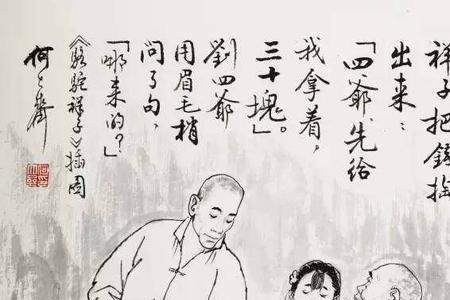 祥子把錢掏
出来：
「四爺，先给
我拿着，
三十塊」。
劉四爺
用眉毛梢
问了句，
「哪来的？」
《骆驼祥子》插图